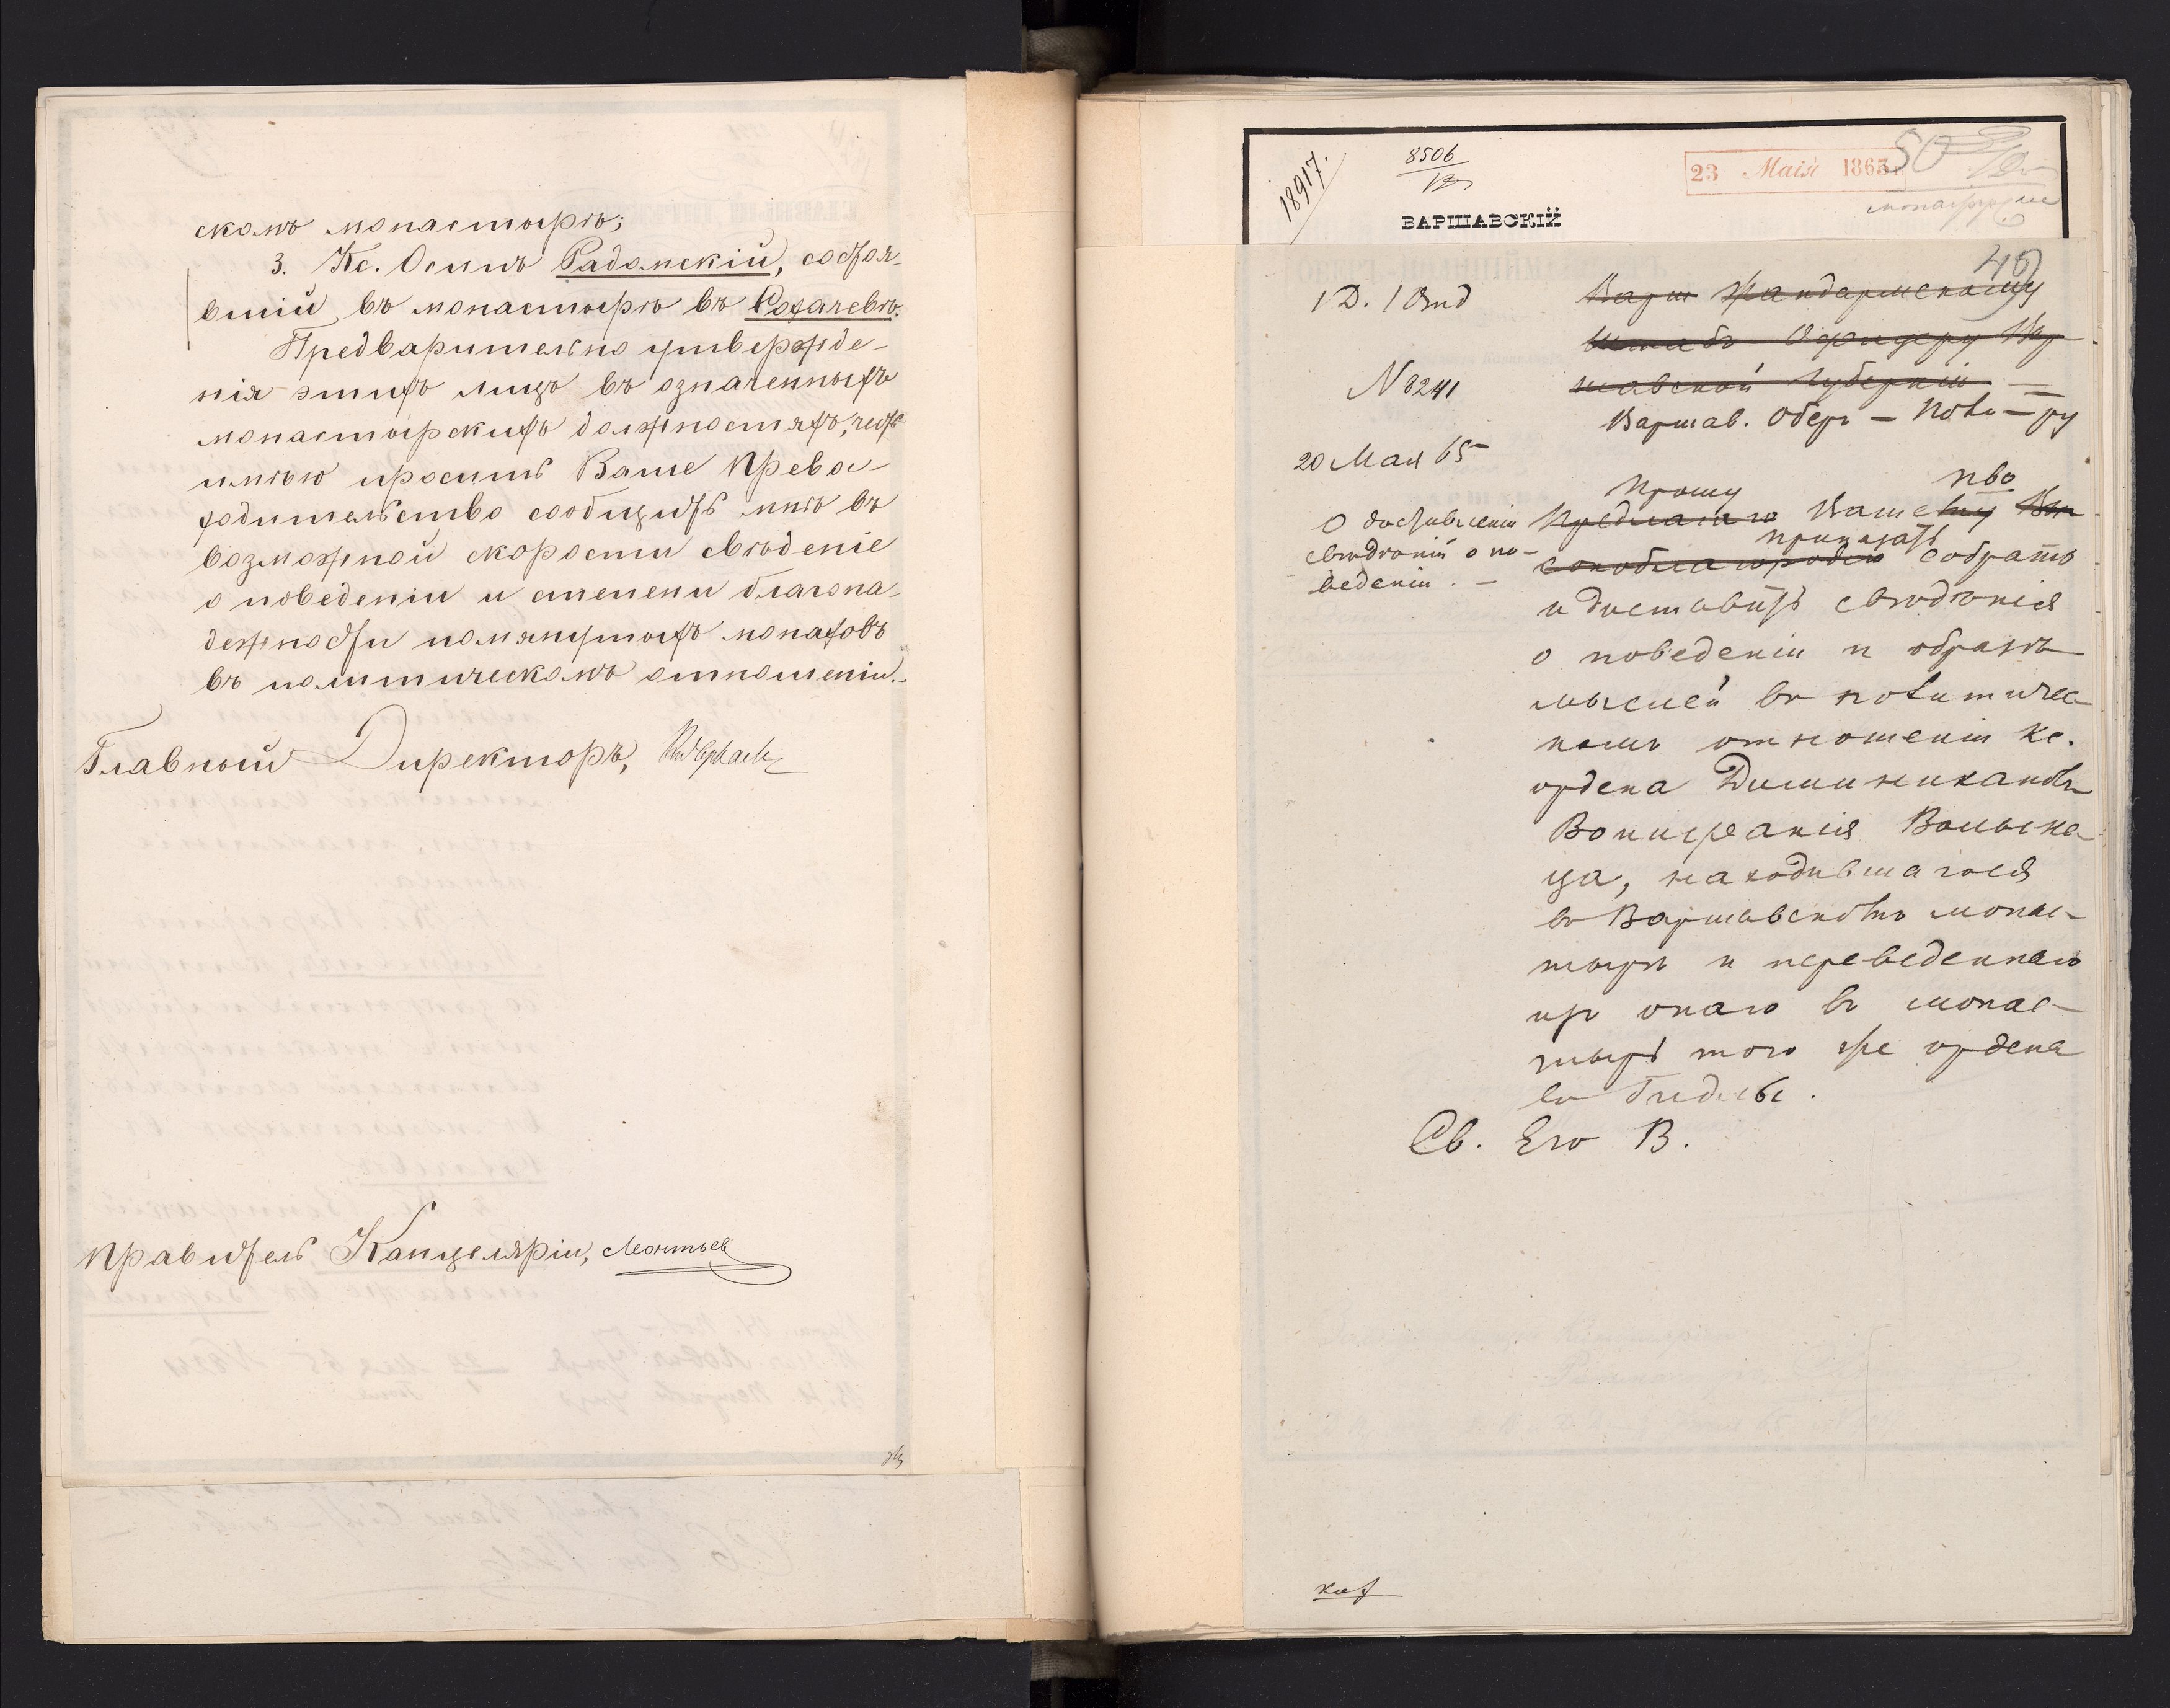 скомъ монастырѣ;
3. Кс. Осипъ Радомскій, состоя-
вшій въ монастырѣ въ Сохачевѣ.
Предварительно утвержде-
нія этихъ лицъ въ означенныхъ
монастырскихъ должностяхъ, честь
имѣю просить Ваше Прево-
сходительство сообщить мнѣ въ
возможной скорости свѣденіе
о поведеніи и степени благона-
дежности помянутыхъ монаховъ
въ политическомъ отношеніи.
Главный Директоръ,
Правитель Канцеляріи, Леонтьев
18917.
8506
23 Маія 1865
50
ВАРШАВСКІЙ
49
1 Д. / Отд
№ 8241
20 Мая 65
О доставленіи
свѣдѣній о по-
веденіи. –
Варш Жандармскому
Штабъ Офицеру Вар
шавской Губерніи
Варшав. Оберъ – Поли – ру
Прошу пво
Предлагаю Вашему Вы
приказать
сокоблагородію собрать
и доставить свѣдѣнія
о поведеніи и образѣ
мыслей въ политичес
комъ отношеніи Кс.
ордена Доминикановъ
Бонифація Волынс
ца, находившагося
въ Варшавскомъ монас-
тырѣ и переведеннаго
изъ онаго въ монас-
тырь того же ордена
въ Гидле.
Св. Его В.